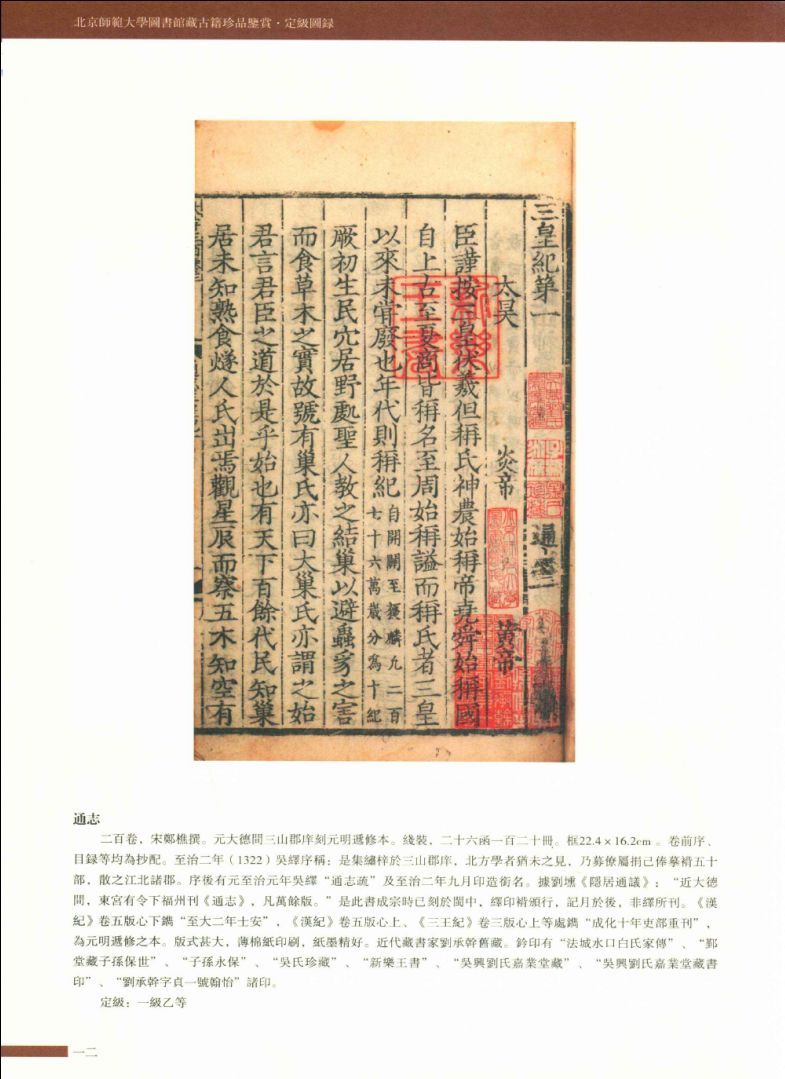 北京師範大學圖書館藏古籍珍品鑒賞·定級圖録
三皇紀第一
通志一
太昊
炎帝
黃帝
臣謹按三皇伏羲但稱氏神農始稱帝堯舜始稱國
自上古至夏商皆稱名至周始稱謚而稱氏者三皇
以來未嘗廢也年代則稱紀自開闢至獲麟九二百七十六萬歲分爲十紀
厥初生民穴居野處聖人教之結巢以避蟲豸之害
而食草木之實故號有巢氏亦曰大巢氏亦謂之始
君言君臣之道於是乎始也有天下百餘代民知巢
居未知熟食燧人氏出焉觀星辰而察五木知空有
通志
二百卷，宋鄭樵撰。元大德間三山郡庠刻元明遞修本。綫裝，二十六函一百二十冊。框22.4×16.2cm。卷前序、
目録等均為抄配。至治二年（1322）吳繹序稱：是集繡梓於三山郡庠，北方學者猶未之見，乃募僚屬捐己俸摹褙五十
部，散之江北諸郡。序後有元至治元年吳繹“通志疏”及至治二年九月印造銜名。據劉壎《隱居通議》：“近大德
間，東宮有令下福州刊《通志》，凡萬餘版。”是此書成宗時已刻於閩中，繹印褙頒行，記月於後，非繹所刊。《漢
紀》卷五版心下鐫“至大二年士安”，《漢紀》卷五版心上、《三王紀》卷三版心上等處鐫“成化十年吏部重刊”，
為元明遞修之本。版式甚大，薄棉紙印刷，紙墨精好。近代藏書家劉承幹舊藏。鈐印有“法城水口白氏家傳”、“鄞
堂藏子孫保世”、“子孫永保”、“吳氏珍藏”、“新樂王書”、“吳興劉氏嘉業堂藏”、“吳興劉氏嘉業堂藏書
印”、“劉承幹字貞一號翰怡”諸印。
定級：一級乙等
一二